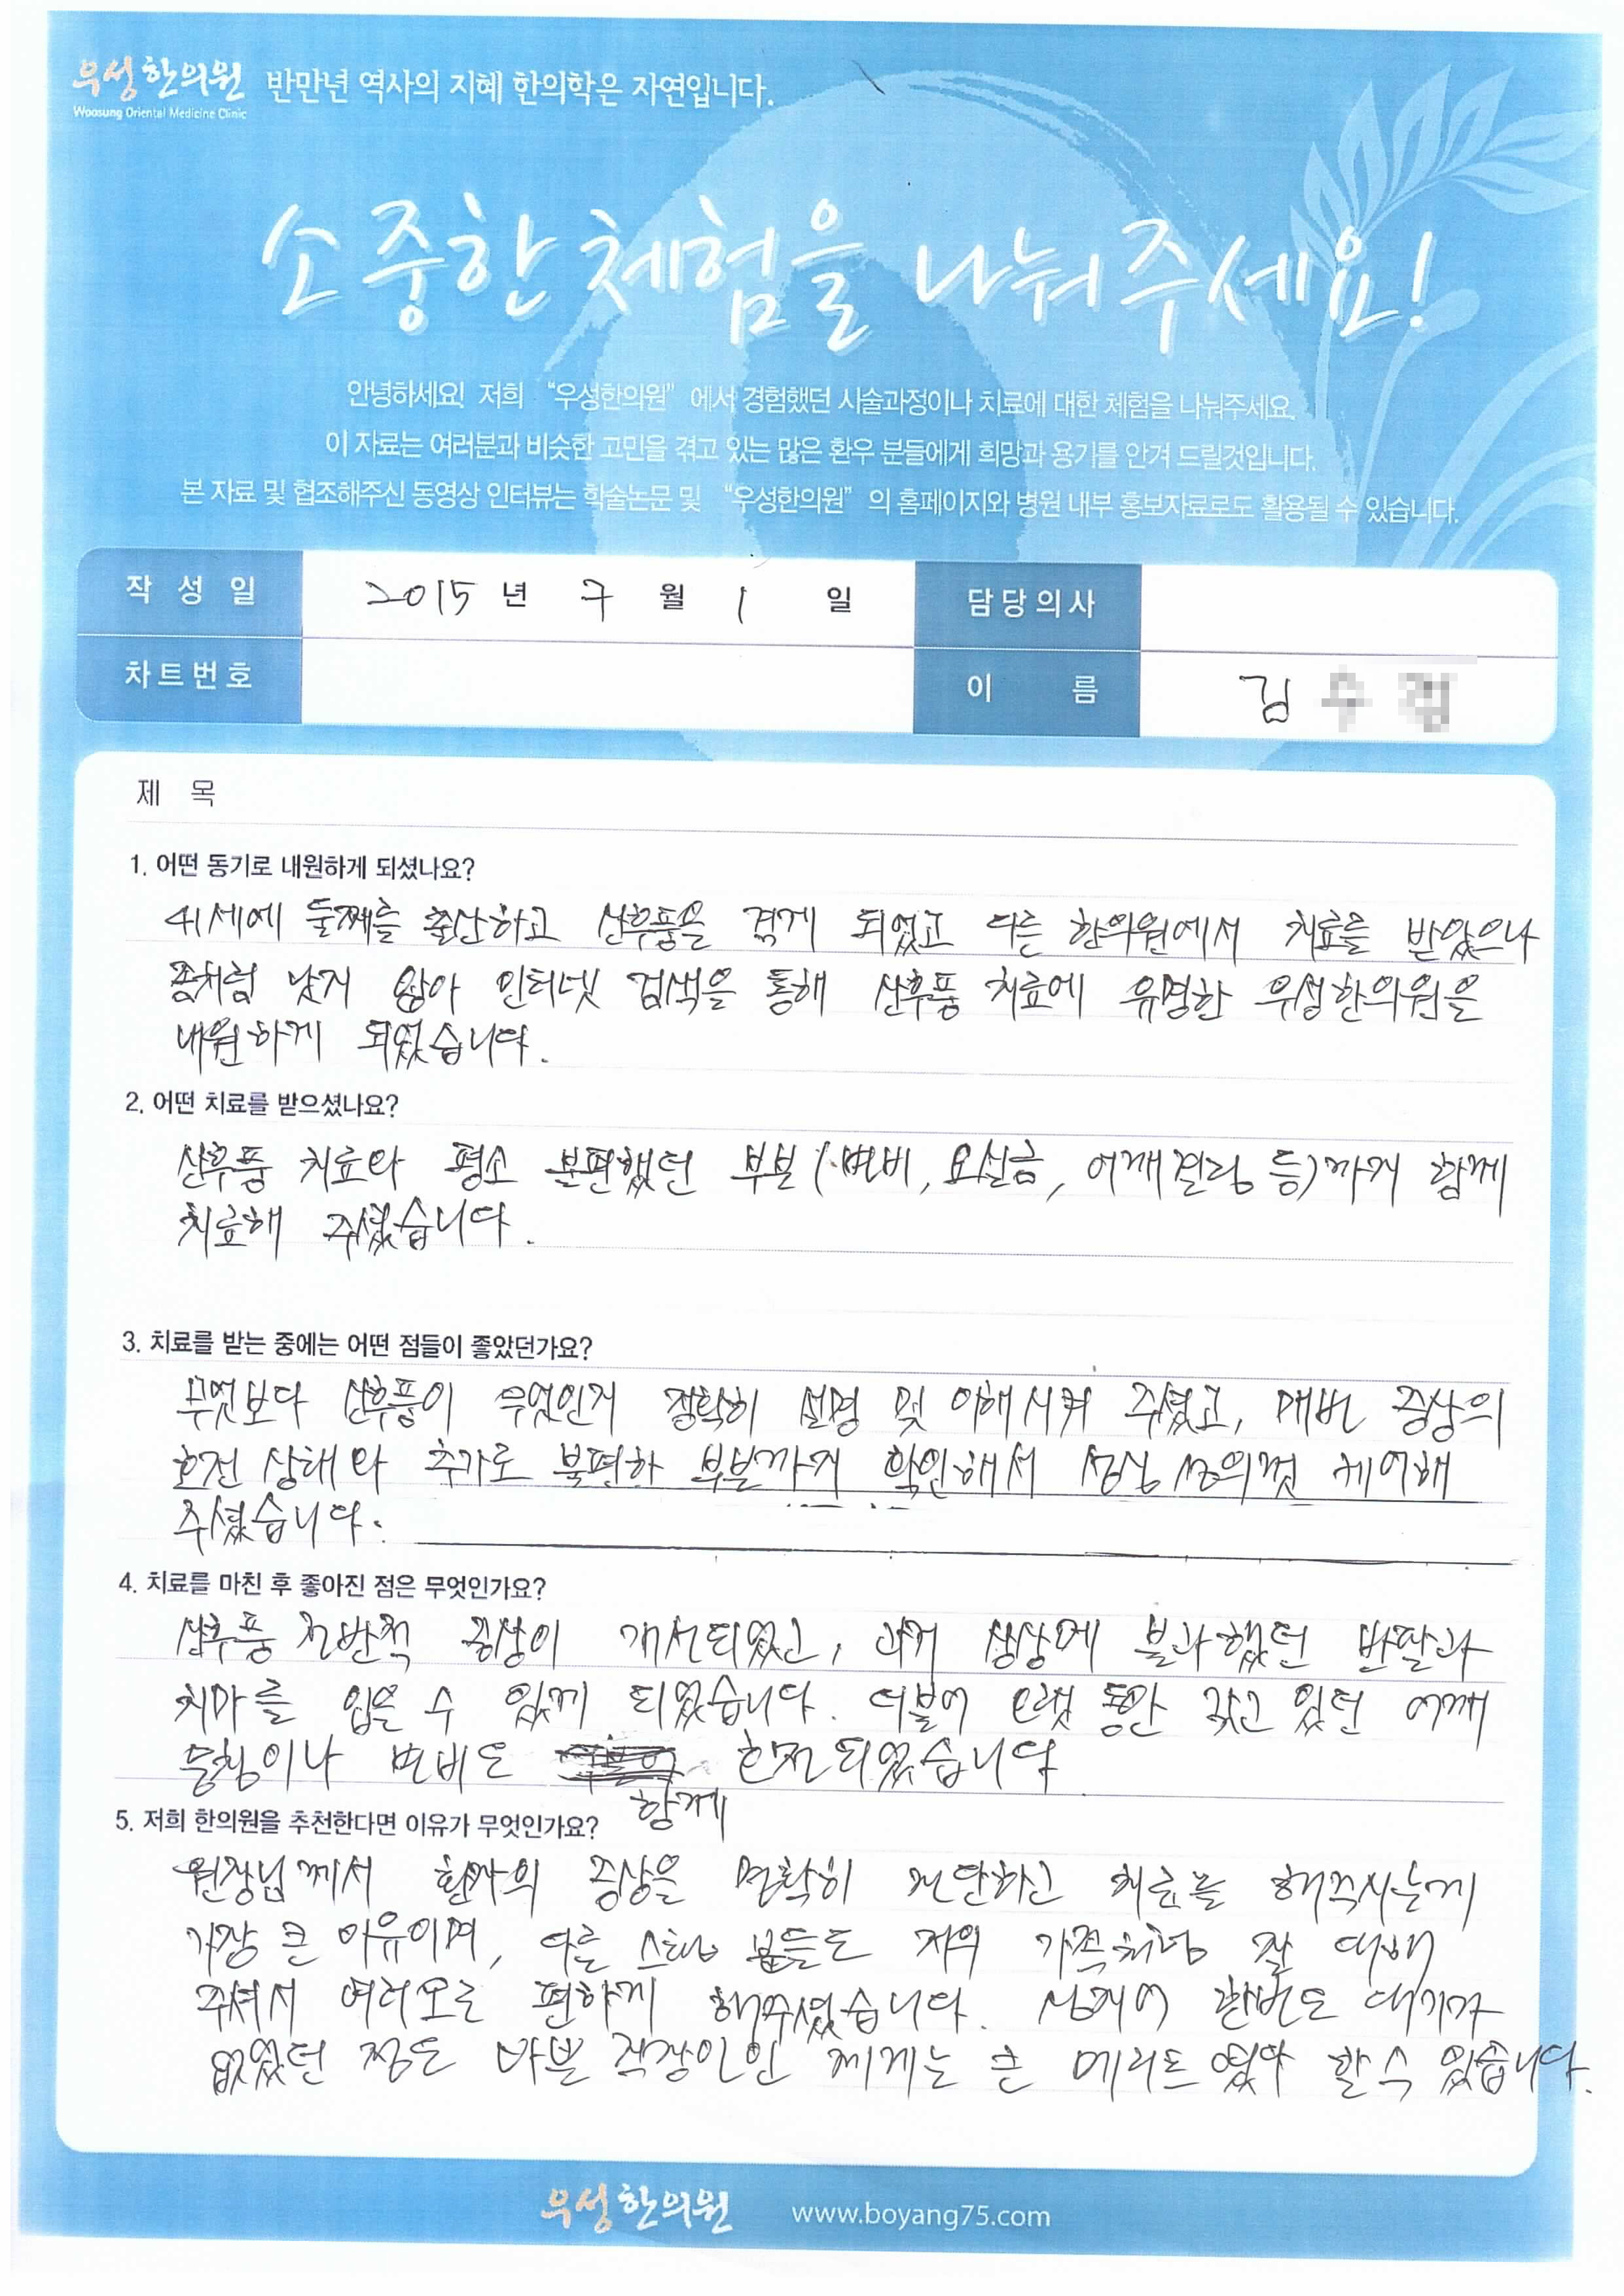 우성한의원 반만년 역사의 지혜 한의학은 자연입니다.
Woosung Oriental Medicine Clinic
소중한 체험을 나눠주세요!
안녕하세요! 저희 “우성한의원” 에서 경험했던 시술과정이나 치료에 대한 체험을 나눠주세요.
이 자료는 여러분과 비슷한 고민을 겪고 있는 많은 환우 분들에게 희망과 용기를 안겨 드릴것입니다.
본 자료 및 협조해주신 동영상 인터뷰는 학술논문 및 “우성한의원” 의 홈페이지와 병원 내부 홍보자료로도 활용될 수 있습니다.
작 성 일 2015 년 7 월 1 일 담당의사
차트번호 이 름 김
제 목
1. 어떤 동기로 내원하게 되셨나요?
41세에 둘째를 출산하고 산후풍을 겪게 되었고 다른 한의원에서 치료를 받았으나
좀처럼 낫지 않아 인터넷 검색을 통해 산후풍 치료에 유명한 우성한의원을
내원하게 되었습니다.
2. 어떤 치료를 받으셨나요?
산후풍 치료와 평소 불편했던 부분(변비, 요실금, 어깨결림 등)까지 함께
치료해 주셨습니다.
3. 치료를 받는 중에는 어떤 점들이 좋았던가요?
무엇보다 산후풍이 무엇인지 정확히 설명 및 이해시켜 주셨고, 매번 증상의
호전 상태와 추가로 불편한 부분까지 확인해서 성심 성의껏 케어해
주셨습니다.
4. 치료를 마친 후 좋아진 점은 무엇인가요?
산후풍 전반적 증상이 개선되었고, 과거 상상에 불과했던 반팔과
치마를 입을 수 있게 되었습니다. 더불어 오랫 동안 갖고 있던 어깨
뭉침이나 변비도 함께 호전되었습니다
5. 저희 한의원을 추천한다면 이유가 무엇인가요?
원장님께서 환자의 증상을 명확히 진단하고 치료를 해주시는게
가장 큰 이유이며, 다른 스탭 분들도 저의 가족처럼 잘 대해
주셔서 여러모로 편하게 해주셨습니다. 심지어 한번도 대기가
없었던 점도 바쁜 직장인인 제게는 큰 메리트였다 할 수 있습니다.
우성한의원 www.boyang75.com